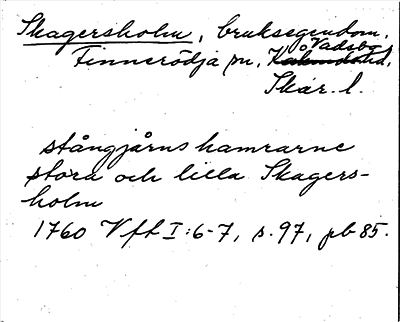 Skagersholm, bruksegendom,
Finnerödja sn, Vadsbo
Skar. l.
stångjärnshamrarne
stora och lilla Skagers-
holm
1760 Vfl I:6-7, s. 97, pb 85.